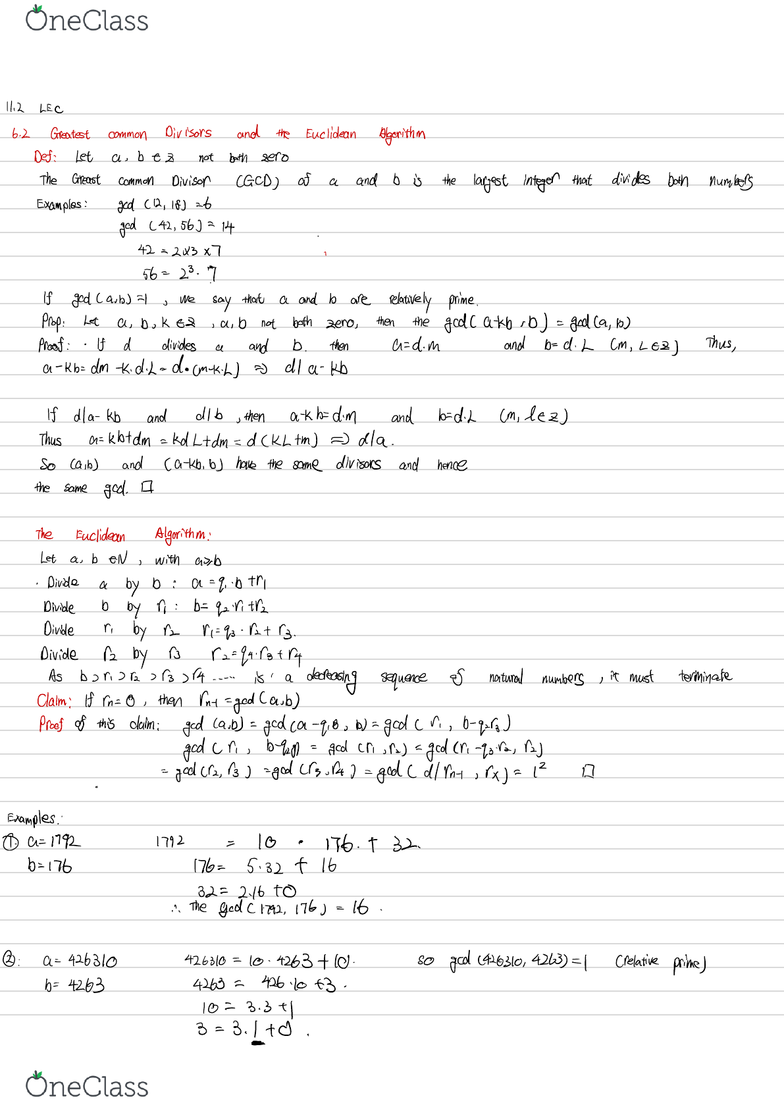 OneClass
11.2 LEC
6.2 Greatest common Divisors and the Euclidean Algorithm
Def: Let a, b ∈ Z not both zero
The Greast common Divisor (GCD) of a and b is the largest integer that divides both numbers
Examples: gcd (12, 18) = 6
gcd (42, 56) = 14
42 = 2×3 ×7
56 = 2³· 7
If gcd(a,b) = 1, we say that a and b are relatively prime.
Prop: Let a, b, k ∈ Z, a, b not both zero, then the gcd(a-kb, b) = gcd(a, b)
Proof: · If d divides a and b. then a=d·m and b= d·L (m, L∈Z) Thus,
a-kb= dm -k·d·L = d·(m-k·L) => d| a-kb
If d|a-kb and d|b, then a-kb=d·m and b=d·L (m, l∈Z)
Thus a=kb+dm = kdL+dm = d(kL+m) => d|a.
So (a,b) and (a-kb,b) have the same divisors and hence
the same gcd. □
The Euclidean Algorithm:
Let a, b ∈N, with a≥b
· Divide a by b: a = q₁·b +r₁
Divide b by r₁: b= q₂·r₁+r₂
Divide r₁ by r₂ r₁=q₃·r₂+ r₃.
Divide r₂ by r₃ r₂=q₄·r₃+r₄
As b>r₁>r₂>r₃>r₄ ..... is a decreasing sequence of natural numbers, it must terminate
Claim: If rn=0, then rn-1=gcd(a,b)
Proof of this claim: gcd (a,b) = gcd(a-q₁b, b) = gcd( r₁, b-q₂r₃)
gcd( r₁, b-q₂r₁) = gcd (r₁,r₂) = gcd(r₁-q₃·r₂, r₂)
= gcd(r₂, r₃) = gcd(r₃,r₄) = gcd( d/ rn-1, rx) = 1² □
Examples:
① a=1792 1792 = 10 · 176. + 32.
b=176 176= 5·32 + 16
32= 2·16 +0
∴ The gcd(1792, 176) = 16.
②: a= 426310 426310 = 10· 4263 +10. so gcd (426310, 4263)=1 (relative prime)
b= 4263 4263 = 426·10 +3.
10 = 3·3 +1
3 = 3·1 +0.
OneClass